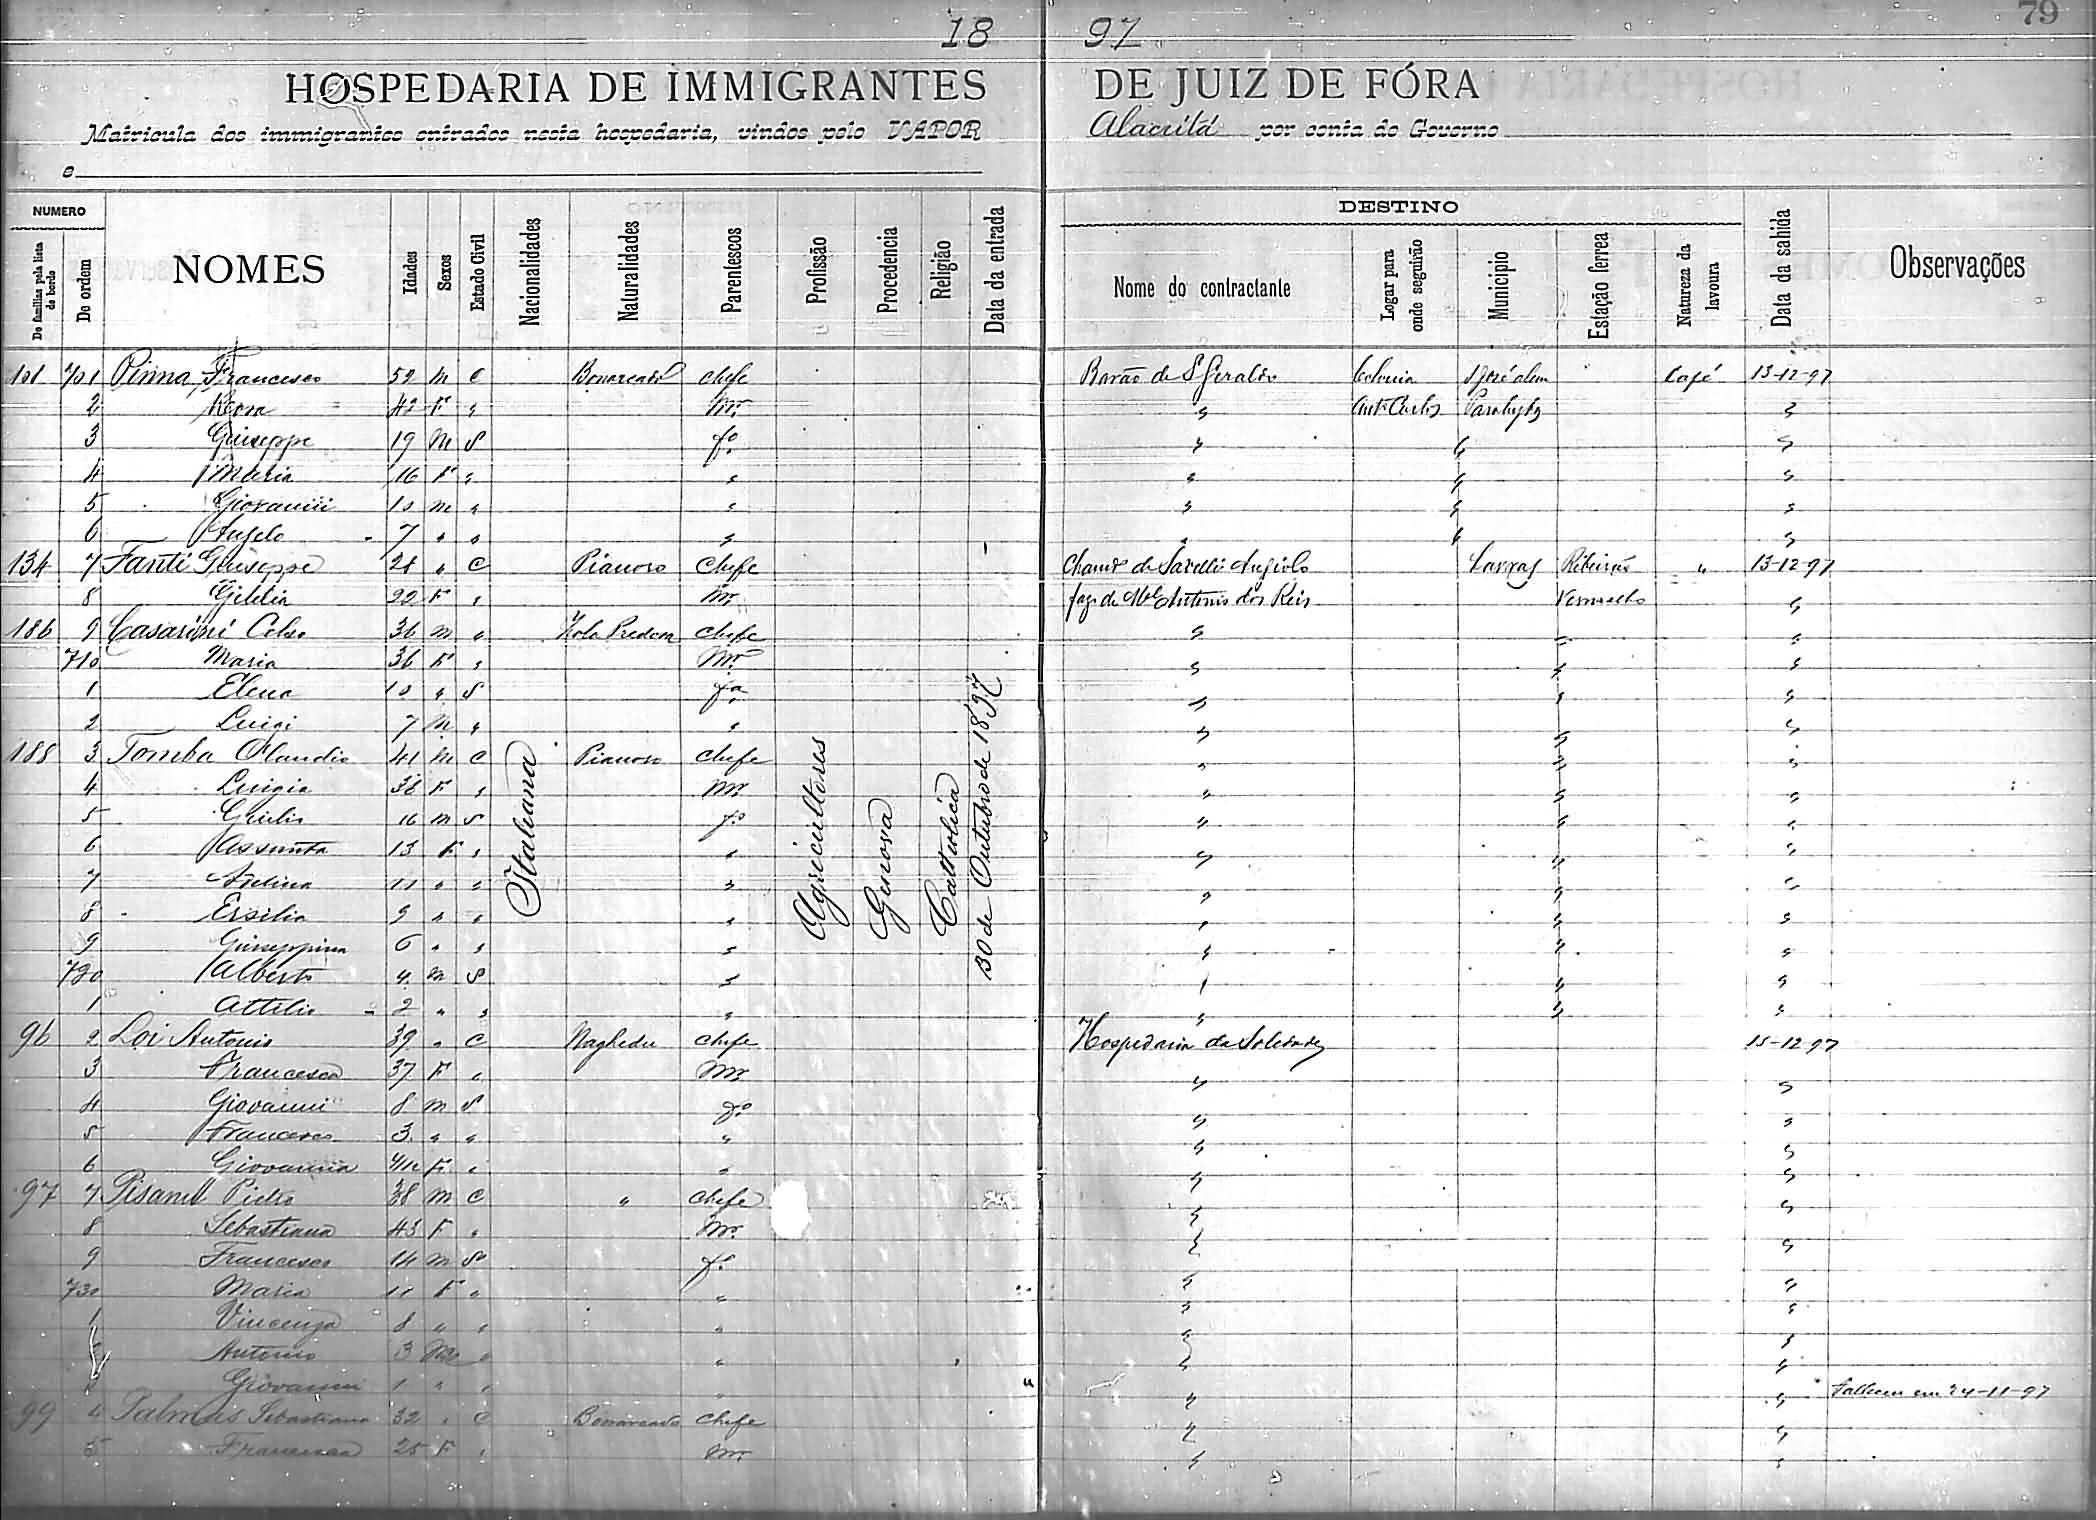 79
18 97
HOSPEDARIA DE IMMIGRANTES DE JUIZ DE FÓRA
Matricula dos immigrantes entrados nesta hospedaria, vindos pelo VAPOR Alacritá por conta do Governo
e
NUMERO
De familias pela lista de bordo
De ordem
NOMES
Idades
Sexos
Estado Civil
Nacionalidades
Naturalidades
Parentescos
Profissão
Procedencia
Religião
Data da entrada
DESTINO
Nome do contractante
Logar para onde seguirão
Municipio
Estação ferrea
Natureza da lavoura
Data da sahida
Observações
Italiana
Agricultores
Genova
Catholica
30 de Outubro de 1897
101 701 Pinna, Francesco 52 M C Bonarcado Chefe Barão de S. Geraldo Colonia S José alem Café 13-12-97
2 42 F " Mr. " Anto Carlos Parahyba "
3 Giuseppe 19 M S fo " " "
4 Maria 16 F " " " " "
5 Giovanni 10 M " " " " "
6 Angelo 7 " " " " " "
134 7 Fanti Giuseppe 28 " C Pianoro Chefe de Savelli Angiolo Lavras Ribeirão " 13-12-97
8 22 F " Mr. faz de Mel Antonio dos Reis Vermelho "
186 9 Casarini Celso 36 M " Zola Predosa Chefe " " "
710 Maria 36 F " Mr. " " "
1 Elena 10 " S fa " " "
2 Luigi 7 M " " " " "
188 3 Tomba Claudio 41 M C Pianoro Chefe " " "
4 Luigia 38 F " Mr. " " "
5 Giulio 16 M S fo " " "
6 Assunta 13 F " " " " "
7 11 " " " " " "
8 Ersilia 9 " " " " " "
9 Giuseppina 6 " " " " " "
720 Alberto 4 M S " " " "
1 Attilio 2 " " " " " "
96 2 Loi Antonio 39 " C Naghedu Chefe Hospedaria da Soledade 15-12-97
3 Francesca 37 F " Mr. " "
4 Giovanni 8 M S fo " "
5 Francesco 3 " " " " "
6 Giovanna F " " " "
97 7 Pisanu Pietro 38 M C " Chefe " "
8 Sebastiana 43 F " Mr. " "
9 Francesco 14 M S fo " "
730 Maria 11 F " " " "
1 Vincenza 8 " " " " "
Antonio 3 M " " " "
Giovanni 1 " " " " " Falleceu em 24-11-97
99 4 Palmas Sebastiano 32 " C Bonarcado Chefe " "
5 Francesca 25 F " Mr. " "